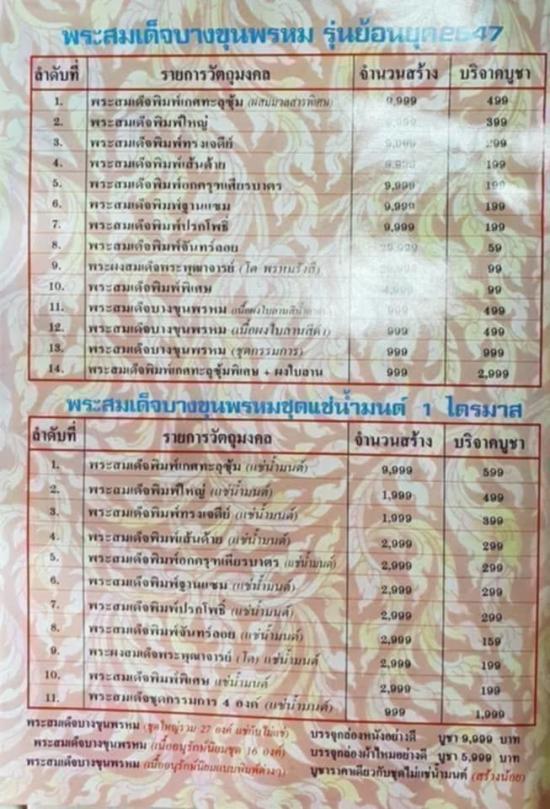 พระสมเด็จบางขุนพรหม รุ่นย้อนยุค2547
ลำดับที่ รายการวัตถุมงคล จำนวนสร้าง บริจาคบูชา
1. พระสมเด็จพิมพ์เกศทะลุซุ้ม (ผสมมวลสารพิเศษ) 9,999 499
2. พระสมเด็จพิมพ์ใหญ่ 399
3. พระสมเด็จพิมพ์ทรงเจดีย์ 299
4. พระสมเด็จพิมพ์เส้นด้าย 9,999 199
5. พระสมเด็จพิมพ์อกครุฑเศียรบาตร 9,999 199
6. พระสมเด็จพิมพ์ฐานแซม 9,999 199
7. พระสมเด็จพิมพ์ปรกโพธิ์ 9,999 199
8. พระสมเด็จพิมพ์จันทร์ลอย 59
9. พระผงสมเด็จพระพุฒาจารย์ (โต พรหมรังสี) 99
10. พระสมเด็จพิมพ์พิเศษ 99
11. พระสมเด็จบางขุนพรหม 999 499
12. พระสมเด็จบางขุนพรหม (เนื้อผงใบลานสีดำ) 999 499
13. พระสมเด็จบางขุนพรหม (ชุดกรรมการ) 999 999
14. พระสมเด็จพิมพ์เกศทะลุซุ้มพิเศษ + ผงใบลาน 999 2,999
พระสมเด็จบางขุนพรหมชุดแช่น้ำมนต์ 1 ไตรมาส
ลำดับที่ รายการวัตถุมงคล จำนวนสร้าง บริจาคบูชา
1. พระสมเด็จพิมพ์เกศทะลุซุ้ม (แช่น้ำมนต์) 9,999 599
2. พระสมเด็จพิมพ์ใหญ่ (แช่น้ำมนต์) 1,999 499
3. พระสมเด็จพิมพ์ทรงเจดีย์ (แช่น้ำมนต์) 1,999 399
4. พระสมเด็จพิมพ์เส้นด้าย (แช่น้ำมนต์) 2,999 299
5. พระสมเด็จพิมพ์อกครุฑเศียรบาตร (แช่น้ำมนต์) 2,999 299
6. พระสมเด็จพิมพ์ฐานแซม (แช่น้ำมนต์) 2,999 299
7. พระสมเด็จพิมพ์ปรกโพธิ์ (แช่น้ำมนต์) 2,999 299
8. พระสมเด็จพิมพ์จันทร์ลอย (แช่น้ำมนต์) 2,999 159
9. พระผงสมเด็จพระพุฒาจารย์ (โต) แช่น้ำมนต์ 2,999 199
10. พระสมเด็จพิมพ์พิเศษ แช่น้ำมนต์ 2,999 199
11. พระสมเด็จชุดกรรมการ 4 องค์ (แช่น้ำมนต์) 999 1,999
พระสมเด็จบางขุนพรหม (ชุดใหญ่รวม 27 องค์ แช่กับไม่แช่) บรรจุกล่องหนังอย่างดี บูชา 9,999 บาท
พระสมเด็จบางขุนพรหม (เนื้ออนุรักษ์นิยมชุด 16 องค์) บรรจุกล่องผ้าไหมอย่างดี บูชา 5,999 บาท
พระสมเด็จบางขุนพรหม (เนื้ออนุรักษ์นิยมแบบพิมพ์ต่างๆ) บูชาราคาเดียวกับชุดไม่แช่น้ำมนต์ (สร้างน้อย)